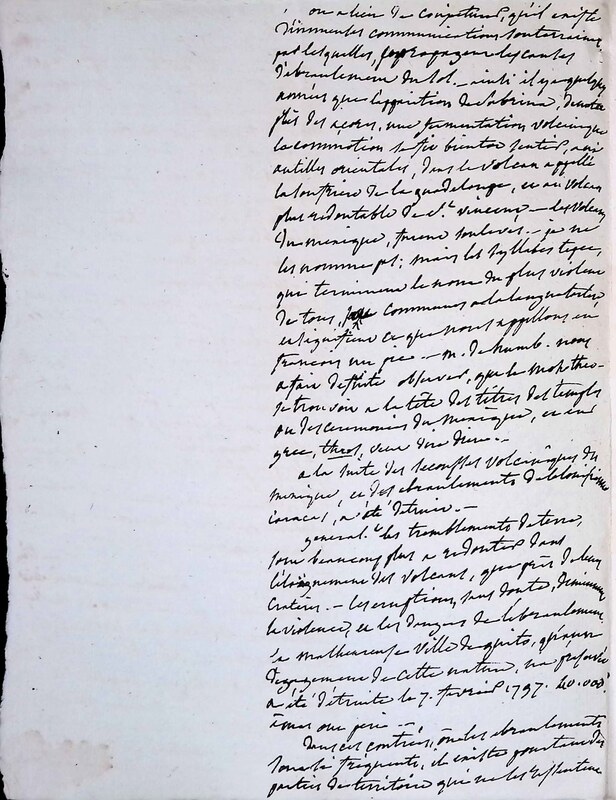 on a lieu de conjecturer, qu'il existe
d'immenses communications souterraines
par lesquelles, se propagent les causes
d'ébranlement du sol. — ainsi il y a quelques
années que l'apparition de Sabrina,
près des açores, une fermentation volcanique
la commotion se fit bientôt sentir, aux
antilles orientales, dans le volcan appellé
la soufriere de la guadeloupe, et au volcan
plus redoutable de St. vincent — les volcans
du mexique, furent soulevés. — je ne
les nomme pas; mais les syllabes tepec,
qui terminent le nom du plus violent
de tous, communes a la langue
ce que nous appellons en
francois un pic. — m. de humb. nous
a fait observer, que le mot theo-
se trouvoit a la tête des titres des temples
ou des ceremonies du mexique, et en
grec, theos, veut dire dieu. —
a la suite des secousses volcaniques du
mexique, et des ebranlements de
caracas, a été détruit. —
general.t les tremblements de terre,
sont beaucoup plus a redouter dans
l'éloignement des volcans, que près de leurs
crateres. — les eruptions, sans doute, diminuent
la violence, et les dangers de l'ebranlement
la malheureuse ville de quito,
degagement de cette nature, n'a
a été détruite le 7. fevrier 1797. 40.000
ames ont peri —
dans ces contrées, ou les ebranlements
sont si fréquents, il existe pourtant des
parties de territoire qui ne les ressentent